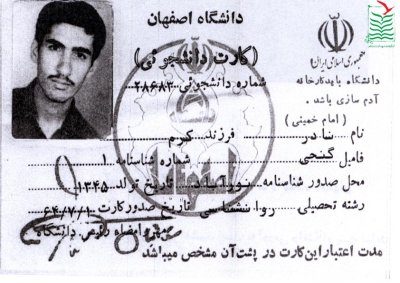 دانشگاه اصفهان
(کارت دانشجوئی)
جمهوری اسلامی ایران
شماره دانشجوئی ۲۸۶۸۲
دانشگاه باید کارخانه
آدم سازی باشد.
(امام خمینی)
نام نادر فرزند کرم
فامیل گنجی شماره شناسنامه ۱
محل صدور شناسنامه نورآباد تاریخ تولد ۱۳۴۵
رشته تحصیلی روانشناسی تاریخ صدور کارت ۶۴/۷/۱
مهر و امضاء دانشگاه
مدت اعتبار این کارت در پشت آن مشخص میباشد